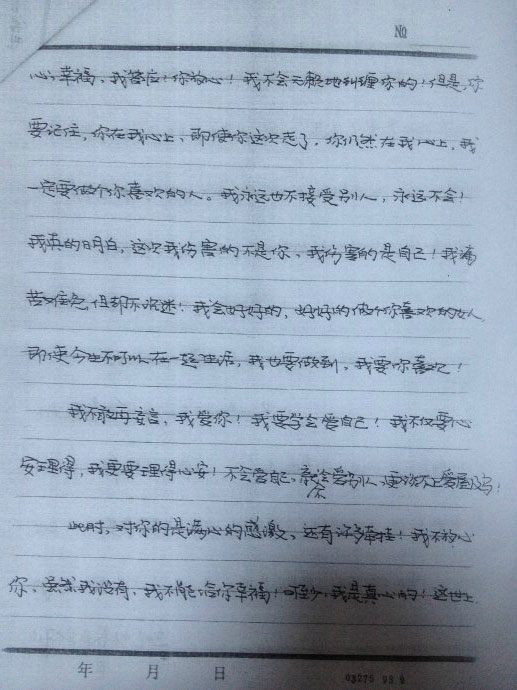 No
心、幸福，我答应！你放心！我不会无赖地纠缠你的！但是，你
要记住，你在我心上，即使你这次走了，你仍然在我心上，我
一定要做个你喜欢的人。我永远也不接受别人，永远不会！
我真的明白，这次我伤害的不是你，我伤害的是自己！我痛
苦难免，但却不沉迷！我会好好的，好好的做个你喜欢的女人，
即使今生不可以在一起生活，我也要做到，我要你喜欢！
我不敢再妄言，我爱你！我要学会爱自己！我不仅要心
安理得，我更要理得心安！不会爱自己，就不会爱别人，更谈不上爱屋及乌！
此时，对你的是满心的感激，还有许多牵挂！我不放心
你，虽然我没有，我不能给你幸福！可至少，我是真心的！这世上
年 月 日
03275 98.9